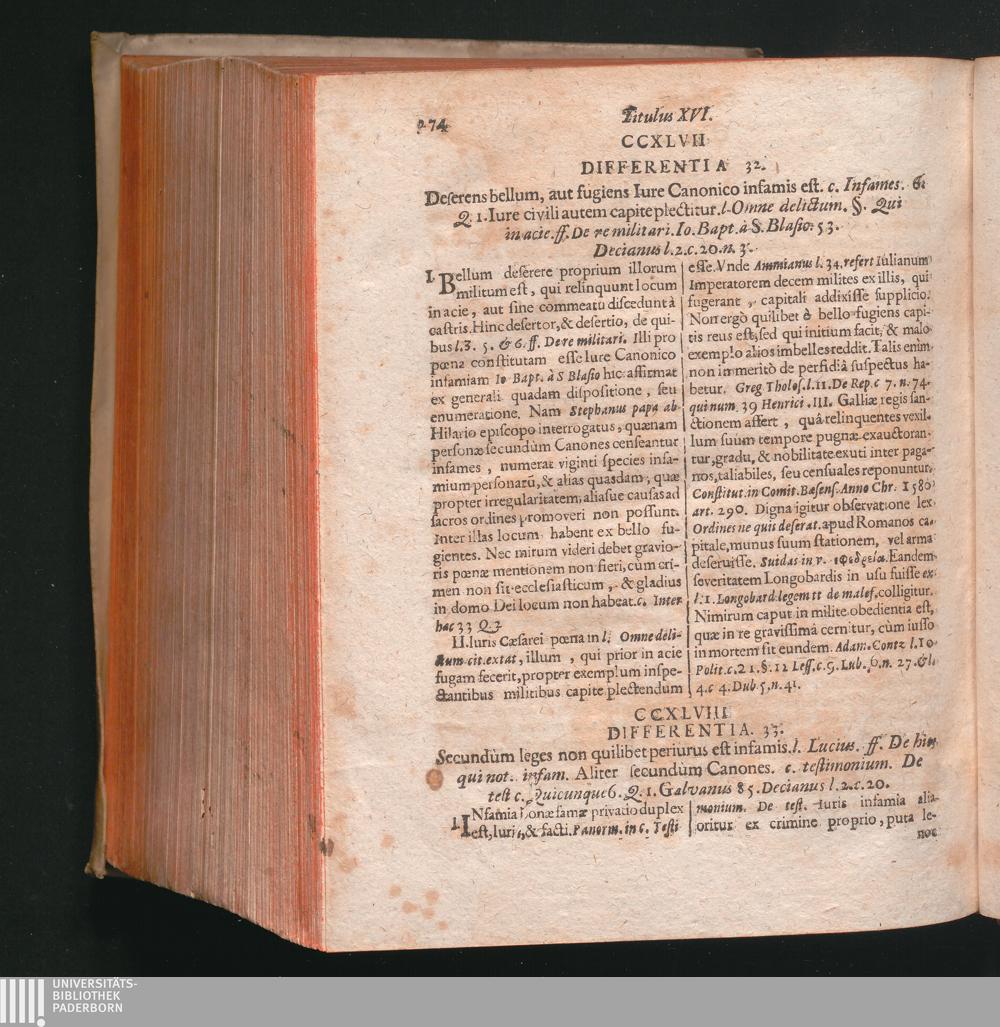 274
Titulus XVI.
CCXLVII
DIFFERENTIA 32.
Deſerens bellum, aut fugiens Iure Canonico infamis eſt. c. Infames. 6.
Q. 1. Iure civili autem capite plectitur. l. Omne delictum. §. Qui
in acie. ff. De re militari. Io. Bapt. à S. Blaſio. 53.
Decianus l. 2. c. 20. n. 3.
I. Bellum deſerere proprium illorum
militum eſt, qui relinquunt locum
in acie, aut ſine commeatu diſcedunt à
caſtris. Hinc deſertor, & deſertio, de qui-
bus l. 3. 5. & 6. ff. De re militari. Illi pro
pœna conſtitutam eſſe Iure Canonico
infamiam Io Bapt. à S Blaſio hic affirmat
ex generali quadam diſpoſitione, ſeu
enumeratione. Nam Stephanus papa ab
Hilario epiſcopo interrogatus, quænam
perſonæ ſecundùm Canones cenſeantur
infames, numerat viginti ſpecies infa-
mium perſonarũ, & alias quasdam, quæ
propter irregularitatem, aliasue causas ad
ſacros ordines promoveri non poſſunt.
Inter illas locum habent ex bello fu-
gientes. Nec mirum videri debet gravio-
ris pœnæ mentionem non fieri, cùm cri-
men non ſit eccleſiaſticum, & gladius
in domo Dei locum non habeat. c. Inter
hæc 33 Q. 2
II. Iuris Cæſarei pœna in l. Omne deli-
ctum cit. extat, illum, qui prior in acie
fugam fecerit, propter exemplum inſpe-
ctantibus militibus capite plectendum
eſſe. Vnde Ammianus l. 34. refert Iulianum
Imperatorem decem milites ex illis, qui
fugerant, capitali addixiſſe ſupplicio.
Non ergò quilibet è bello fugiens capi-
tis reus eſt, ſed qui initium facit, & malo
exemplo alios imbelles reddit. Talis enim
non immeritò de perfidiâ ſuſpectus ha-
betur. Greg. Tholoſ. l. 11. De Rep. c 7. n. 74.
qui num. 39 Henrici. III. Galliæ regis ſan-
ctionem affert, quâ relinquentes vexil-
lum ſuum tempore pugnæ exauctoran-
tur, gradu, & nobilitate exuti inter paga-
nos, taliabiles, ſeu cenſuales reponuntur.
Conſtitut. in Comit. Bæſenſ. Anno Chr. 1580
art. 290. Digna igitur obſervatione lex
Ordines ne quis deſerat. apud Romanos ca-
pitale, munus ſuum ſtationem, vel arma
deſeruiſſe. Suidas in v. Eandem
ſeveritatem Longobardis in uſu fuiſſe ex
l. 1. Longobard. legem tt de malef. colligitur.
Nimirum caput in milite obedientia eſt,
quæ in re graviſſimâ cernitur, cùm iuſſo
in mortem ſit eundem. Adam. Contz l. 10
Polit. c. 21. §. 12 Leſſ. c. 9. Lub. 6. n. 27. & l.
4. c 4. Dub 5. n. 41.
CCXLVIII
DIFFERENTIA. 33.
Secundùm leges non quilibet periurus eſt infamis. l. Lucius. ff. De his,
qui not. infam. Aliter ſecundùm Canones. c. teſtimonium. De
teſt c. Quicunque 6. Q. 1. Galvanus 85. Decianus l. 2. c. 20.
I. INfamia bonæ famæ privatio duplex
eſt, Iuris, & facti. Panorm. in c. Teſti
monium. De teſt. Iuris infamia alia
oritur ex crimine proprio, puta le-
noc
UNIVERSITÄTS-
BIBLIOTHEK
PADERBORN